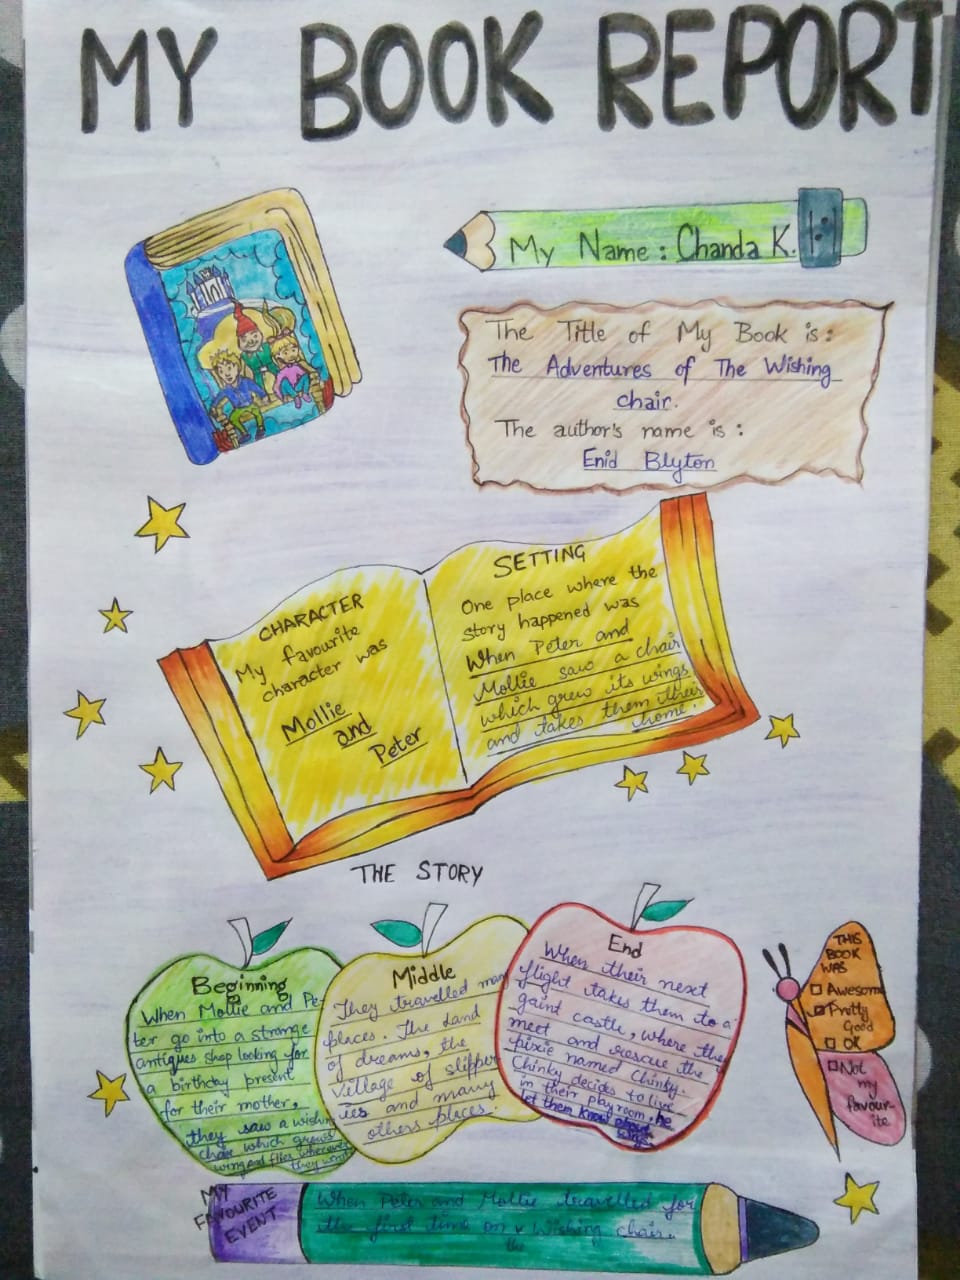 MY BOOK REPORT
My Name : Chanda K.
The Title of My Book is :
The Adventures of The Wishing
chair.
The author's name is :
Enid Blyton
CHARACTER
My favourite
character was
Mollie
and
Peter
SETTING
One place where the
story happened was
When Peter and
Mollie saw a chair
which grew its wings
and takes them their
home.
THE STORY
Beginning
When Mollie and Pe-
ter go into a strange
antiques shop looking for
a birthday present
for their mother,
they saw a wishin
chair which grows
wing and flies wherever
they want
Middle
They travelled many
places. The Land
of dreams, the
village of slipper
ies and many
others places.
End
When their next
flight takes them to a
gaint castle, where they
meet and rescue the
pixie named Chinky.
Chinky decides to live
in their playroom, he
let them know about
THIS
BOOK
WAS
Awesome
Pretty
Good
OK
Not
my
favour-
ite
MY
FAVOURITE
EVENT
When Peter and Mollie travelled for
the first time on v Wishing chair.
the